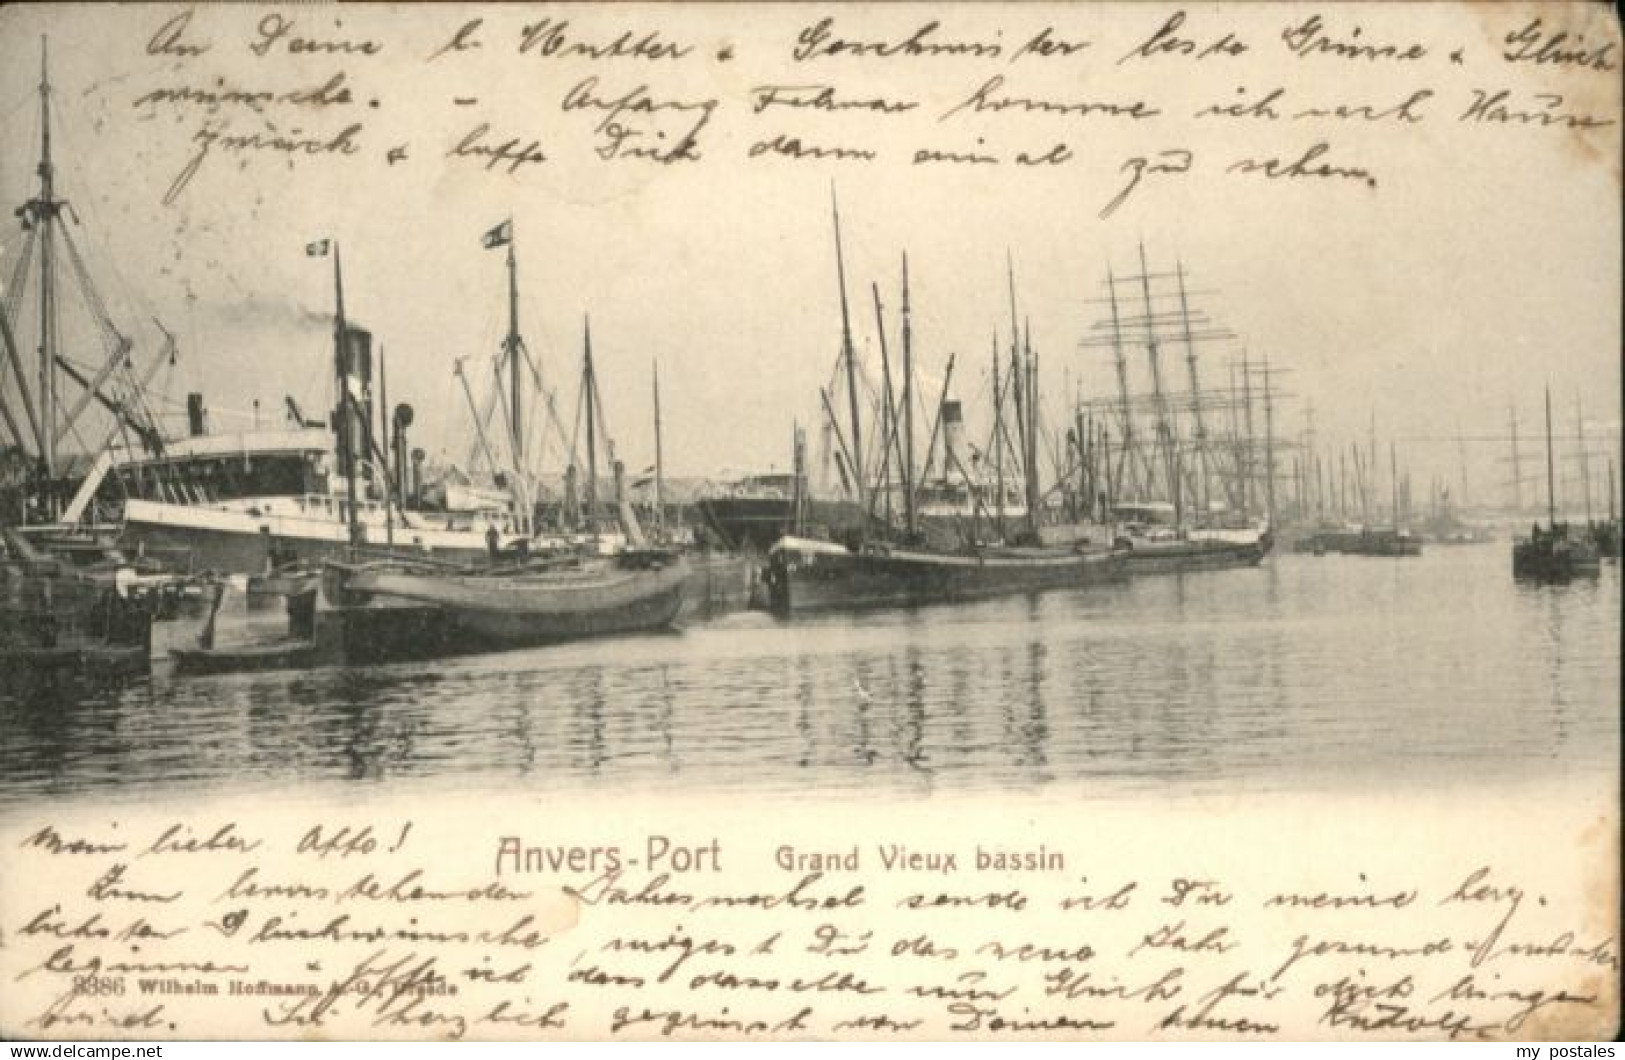 An Deine l. Mutter & Geschwister beste Grüsse & Glück
wünsche. - Anfang Februar komme ich nach Hause
zurück & hoffe Dich dann einmal zu sehen.
Mein lieber Otto!
Anvers-Port Grand Vieux bassin
Zum bevorstehenden Jahreswechsel sende ich Dir meine herz-
lichsten Glückwünsche, mögest Du das neue Jahr gesund & munter
beginnen & hoffe ich dass dasselbe nur Glück für dich bringen
3386 Wilhelm Hoffmann A.-G., Dresde
wird. Sei herzlich gegrüsst von Deinem Rudolf
my postales